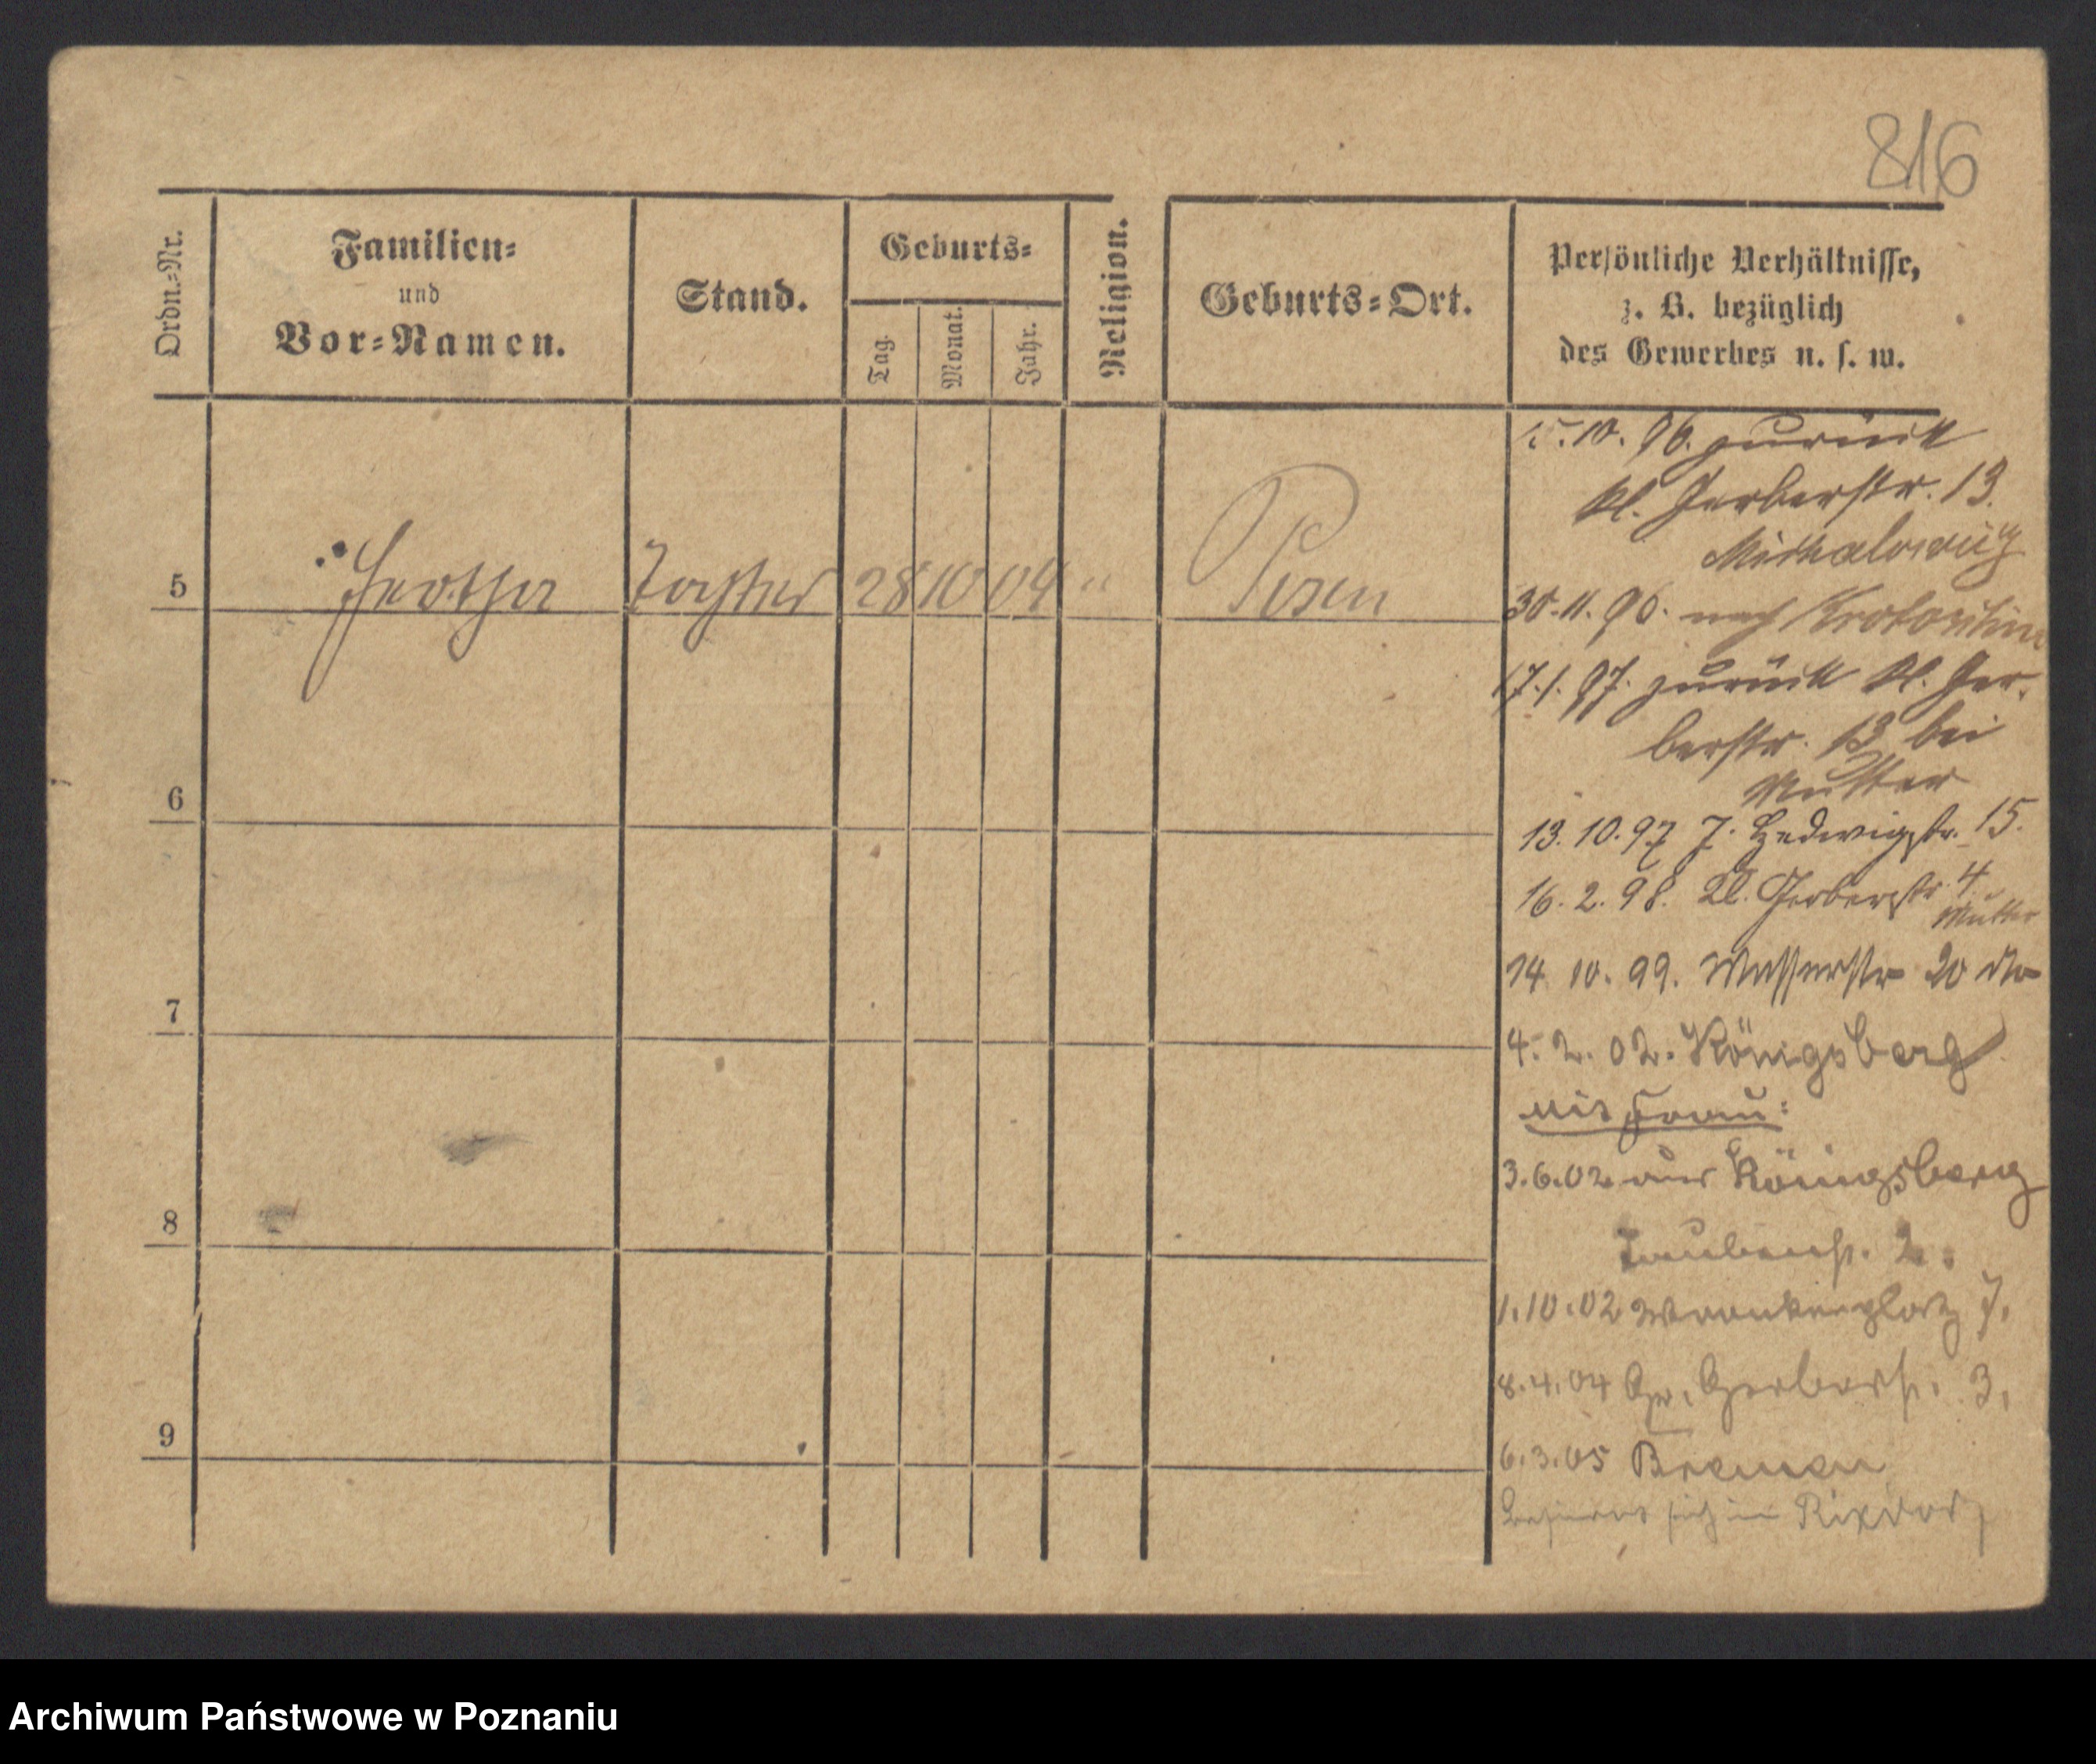 816
Ordn.=Nr.
Familien=
und
Vor=Namen.
Stand.
Geburts=
Tag.
Monat.
Jahr.
Religion.
Geburts=Ort.
Persönliche Verhältnisse,
z. B. bezüglich
des Gewerbes u. s. w.
5
Tochter 28 10 04 "
Posen
6
7
8
9
10. 96. zurück
Kl. Gerberstr. 13.
30. 11. 96. nach Krotoschin
17. 1. 97. zurück Kl. Ger-
berstr. 13 bei
Mutter
13. 10. 97 Hedwigstr. 15.
16. 2. 98. Kl. Gerberstr. 4
Mutter
14. 10. 99. Wasserstr 20
4. 2. 02. Königsberg
mit Frau:
3. 6. 02 aus Königsberg
Taubenstr. 2.
1. 10. 02 Wronkerplatz 7.
8. 4. 04 Gr. Gerberstr. 3.
6. 3. 05 Bremen
sich in Rixdorf
Archiwum Państwowe w Poznaniu